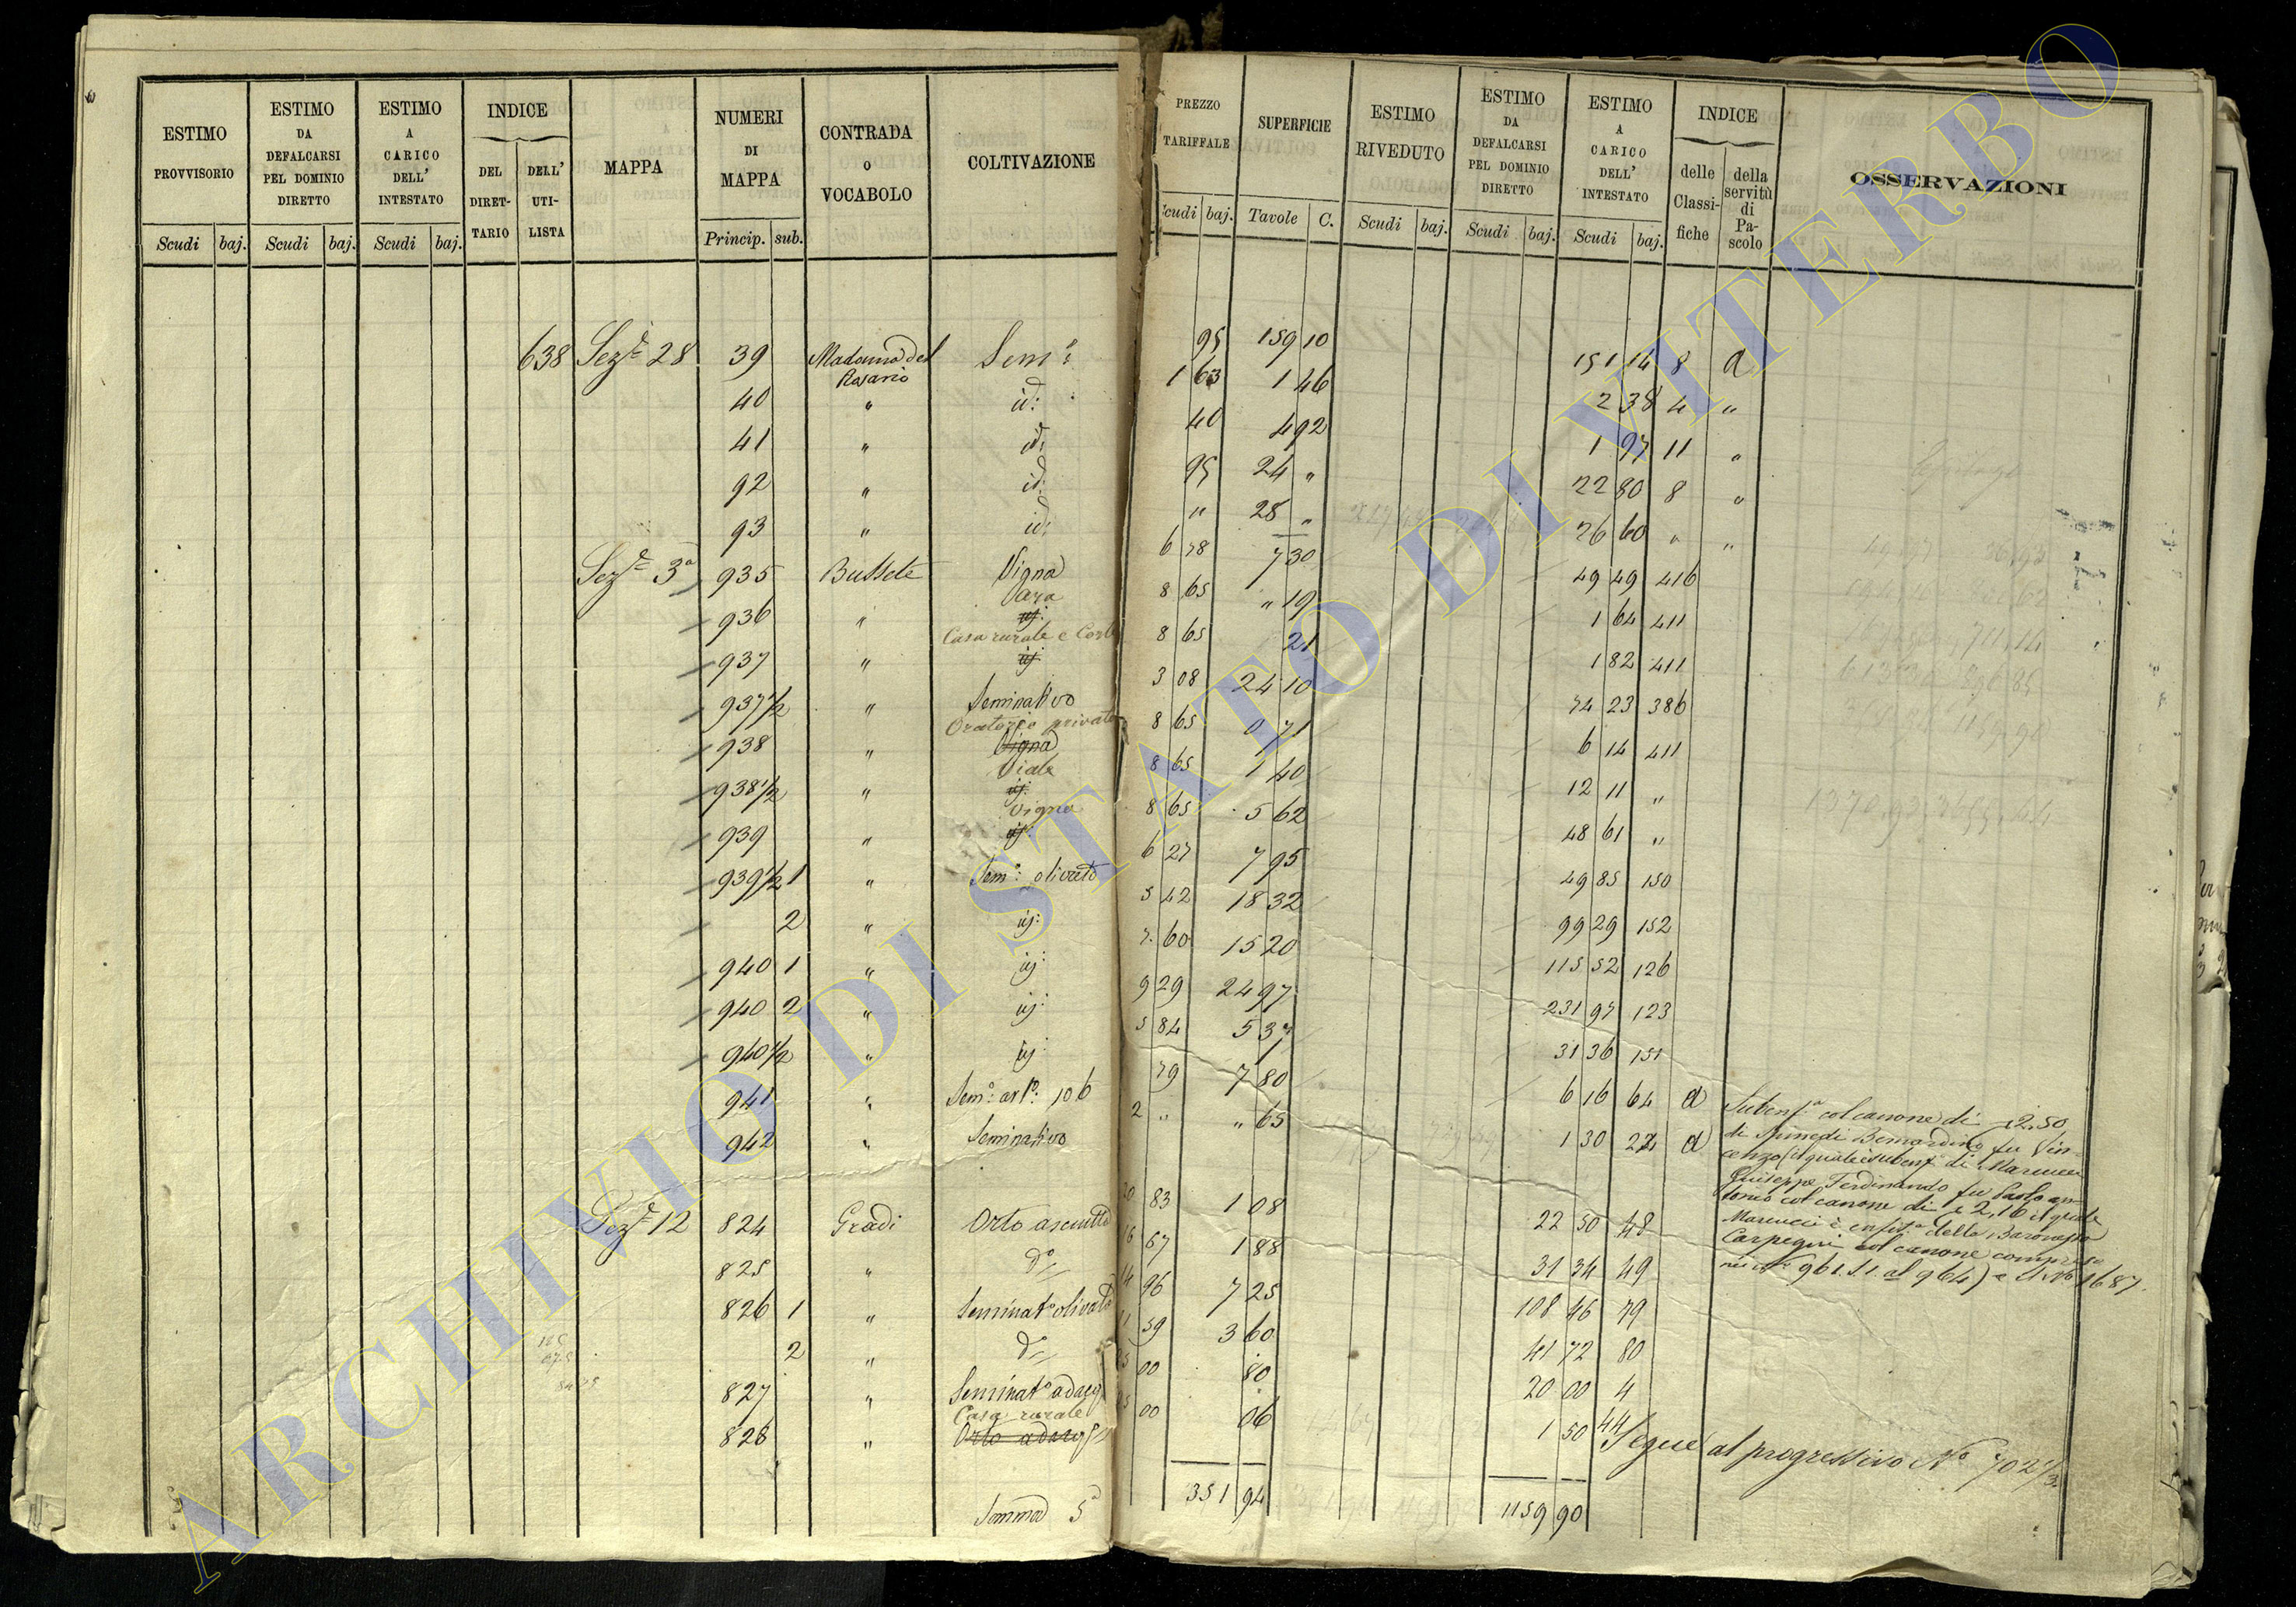 ESTIMO PROVVISORIO | ESTIMO DA DEFALCARSI PEL DOMINIO DIRETTO | ESTIMO A CARICO DELL' INTESTATO | INDICE | MAPPA | NUMERI DI MAPPA | CONTRADA O VOCABOLO | COLTIVAZIONE | PREZZO TARIFFALE | SUPERFICIE | ESTIMO RIVEDUTO | ESTIMO DA DEFALCARSI PEL DOMINIO DIRETTO | ESTIMO A CARICO DELL' INTESTATO | INDICE | OSSERVAZIONI
DEL DIRETTARIO | DELL' UTILISTA | delle Classifiche | della servitù di Pascolo
Scudi baj. | Scudi baj. | Scudi baj. | Princip. sub. | Scudi baj. | Tavole C. | Scudi baj. | Scudi baj. | Scudi baj.
638 Sez.e 28 39 Madonna del Rosario Sem.o 95 159 10 151 14 8 a
40 " id: 1 63 1 46 2 38 4 "
41 " id: 40 4 92 1 97 11 "
92 " id: 95 24 " 22 80 8 "
93 " id: " 28 " 26 60 " "
Sez.e 3a 935 Bussete Vigna 6 78 7 30 49 49 416
936 " ara 8 65 " 19 1 64 411
937 " Casa rurale e Corte 8 65 21 1 82 411
937 1/2 " Seminativo 3 08 24 10 74 23 386
938 " Oratorio privato Vigna 8 65 0 71 6 14 411
938 1/2 " Viale 8 65 1 40 12 11 "
939 " Vigna 8 65 5 62 48 61 "
939 1/2 1 " Sem.o olivato 6 27 7 95 49 85 150
2 " id: 5 42 18 32 99 29 152
940 1 " id: 7 60 15 20 115 52 126
940 2 " id: 9 29 24 97 231 97 123
940 1/2 " id: 5 84 5 37 31 36 151
941 " Sem.o art.o 106 79 7 80 6 16 64 a
942 " Seminativo 2 " " 65 1 30 22 a
Sez.e 12 824 Gradi Orto asciutto 20 83 1 08 22 50 48
825 " d.o 16 67 1 88 31 34 49
826 1 " Seminat.o olivato 14 96 7 25 108 46 79
2 " d.o 11 59 3 60 41 72 80
827 " Seminat.o adacq 25 00 80 20 00 4
828 " Casa rurale Orto adacq 25 00 06 1 50 44
Somma 351 94 1159 90
Subenf.a col canone di 2.50
di Bernardino fu Vin-
cenzo (il quale è subenf.a di Marcucci
Giuseppe Ferdinando fu Paolo an-
tonio col canone di 2,16 il quale
Marcucci è enfit.a della
Carpegni col canone compreso
nei N.i 961.S.1. al 964) e
Segue al progressivo N.o 702 1/3
ARCHIVIO DI STATO DI VITERBO